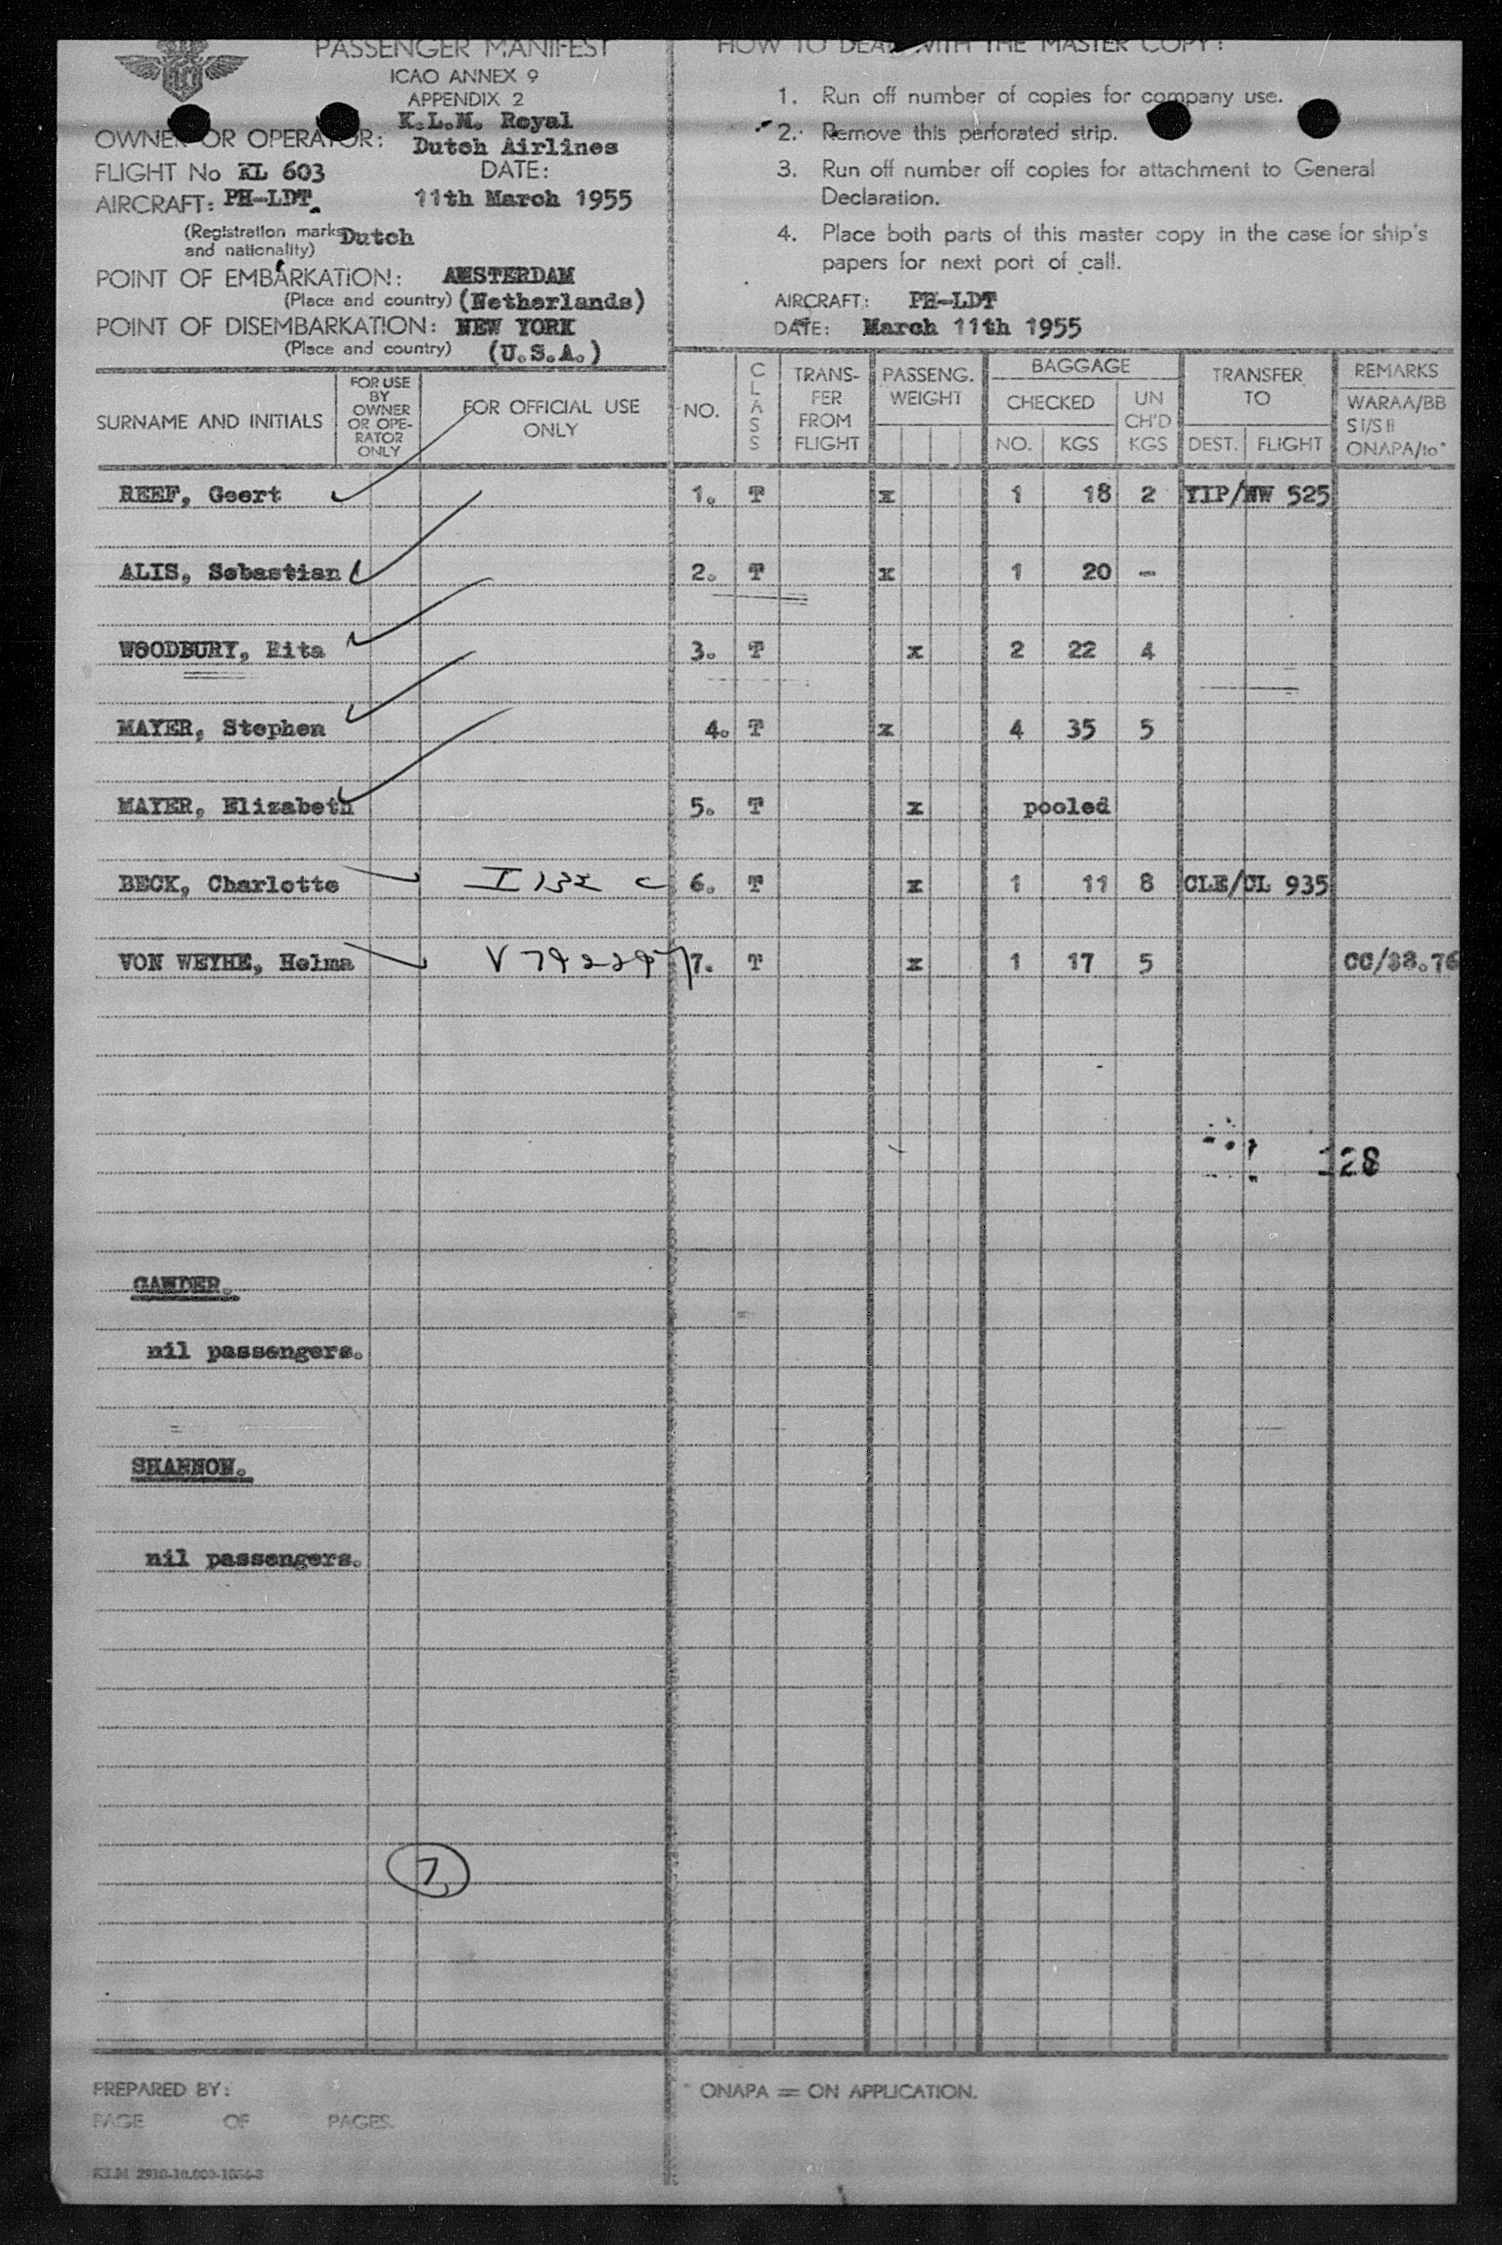 PASSENGER MANIFEST
ICAO ANNEX 9
APPENDIX 2
OWNER OR OPERATOR: K.L.M. Royal
Dutch Airlines
FLIGHT No KL 603 DATE:
AIRCRAFT: PH-LDT. 11th March 1955
(Registration marks Dutch
and nationality)
POINT OF EMBARKATION: AMSTERDAM
(Place and country) (Netherlands)
POINT OF DISEMBARKATION: NEW YORK
(Place and country) (U.S.A.)
HOW TO DEAL WITH THE MASTER COPY:
1. Run off number of copies for company use.
2. Remove this perforated strip.
3. Run off number off copies for attachment to General
Declaration.
4. Place both parts of this master copy in the case for ship's
papers for next port of call.
AIRCRAFT: PH-LDT
DATE: March 11th 1955
SURNAME AND INITIALS
FOR USE
BY
OWNER
OR OPE-
RATOR
ONLY
FOR OFFICIAL USE
ONLY
NO.
CLASS
TRANS-
FER
FROM
FLIGHT
PASSENG.
WEIGHT
BAGGAGE
CHECKED
NO. KGS
UN
CH'D
KGS
TRANSFER
TO
DEST. FLIGHT
REMARKS
WARAA/BB
S I/S II
ONAPA/to*
REEF, Geert 1. T x 1 18 2 YIP/NW 525
ALIS, Sebastian 2. T x 1 20 -
WOODBURY, Rita 3. T x 2 22 4
MAYER, Stephen 4. T x 4 35 5
MAYER, Elizabeth 5. T x pooled
BECK, Charlotte 6. T x 1 11 8 CLE/CL 935
VON WEYHE, Helma 7. T x 1 17 5 CC/$8.76
128
GANDER.
nil passengers.
SHANNON.
nil passengers.
7
PREPARED BY:
PAGE OF PAGES.
* ONAPA = ON APPLICATION.